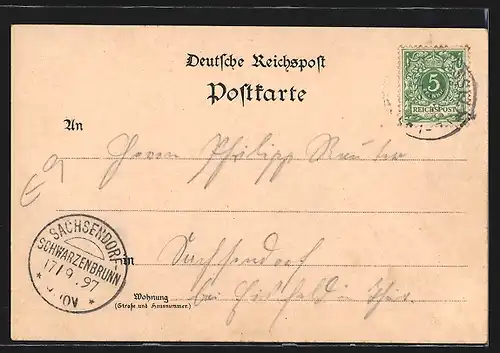 Deutsche Reichspost
Postkarte
5
REICHSPOST
An
Herrn Philipp Reuter
SACHSENDORF-
SCHWARZENBRUNN
17/9.97
* . 10V *
in
Sachsendorf
Wohnung
(Straße und Hausnummer)
bei Eisfeld in Thür.